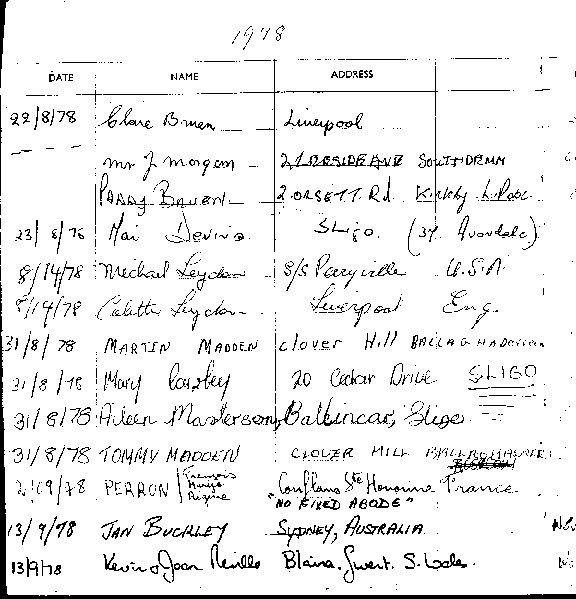 1978
DATE NAME ADDRESS
22/8/78 Clare Liverpool
mr J morgan SOUTHDENM
PADDY 2 ORSETT Rd Kirkby L.Pool
23/8/78 Mai Devins Sligo (37, Avondale)
8/14/78 Michael Leydon S/S Perryville U.S.A
8/14/78 Colette Leydon Liverpool Eng.
31/8/78 MARTIN MADDEN Clover Hill
31/8/78 Mary 20 Cedar Drive SLIGO
31/8/78 Aileen Masterson, Ballincar, Sligo
31/8/78 TOMMY MADDEN CLOVER HILL
2/09/78 PERRON Conflans Ste Honorine France
"NO FIXED ABODE"
13/9/78 JAN BUCKLEY SYDNEY, AUSTRALIA
13/9/78 Kevin & Joan Neville Blaina. Gwent. S. Wales.